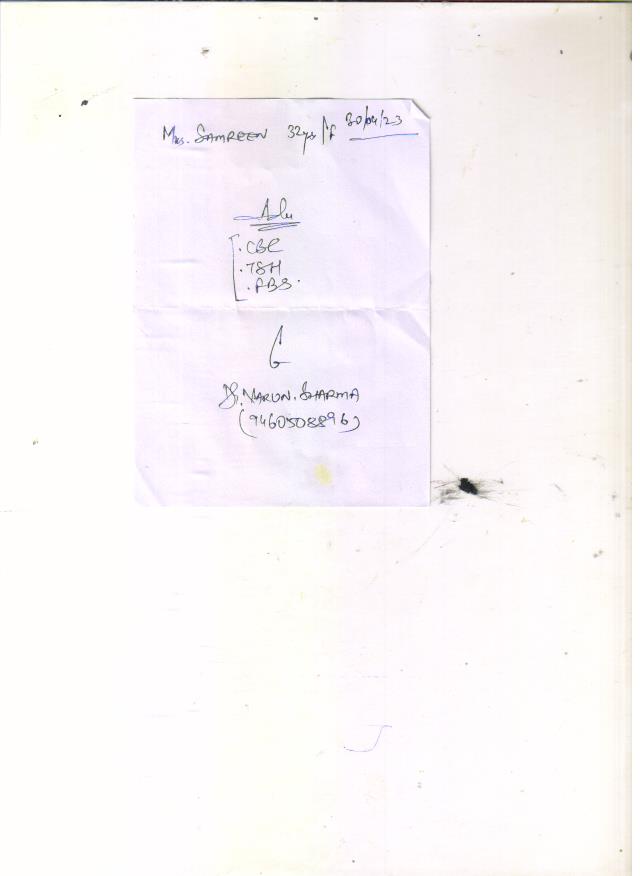 Mrs. SAMREEN 32ys/f 30/04/23
Adv
. CBC
. TSH
. FBS.
Dr. VARUN. SHARMA
(9460508896)